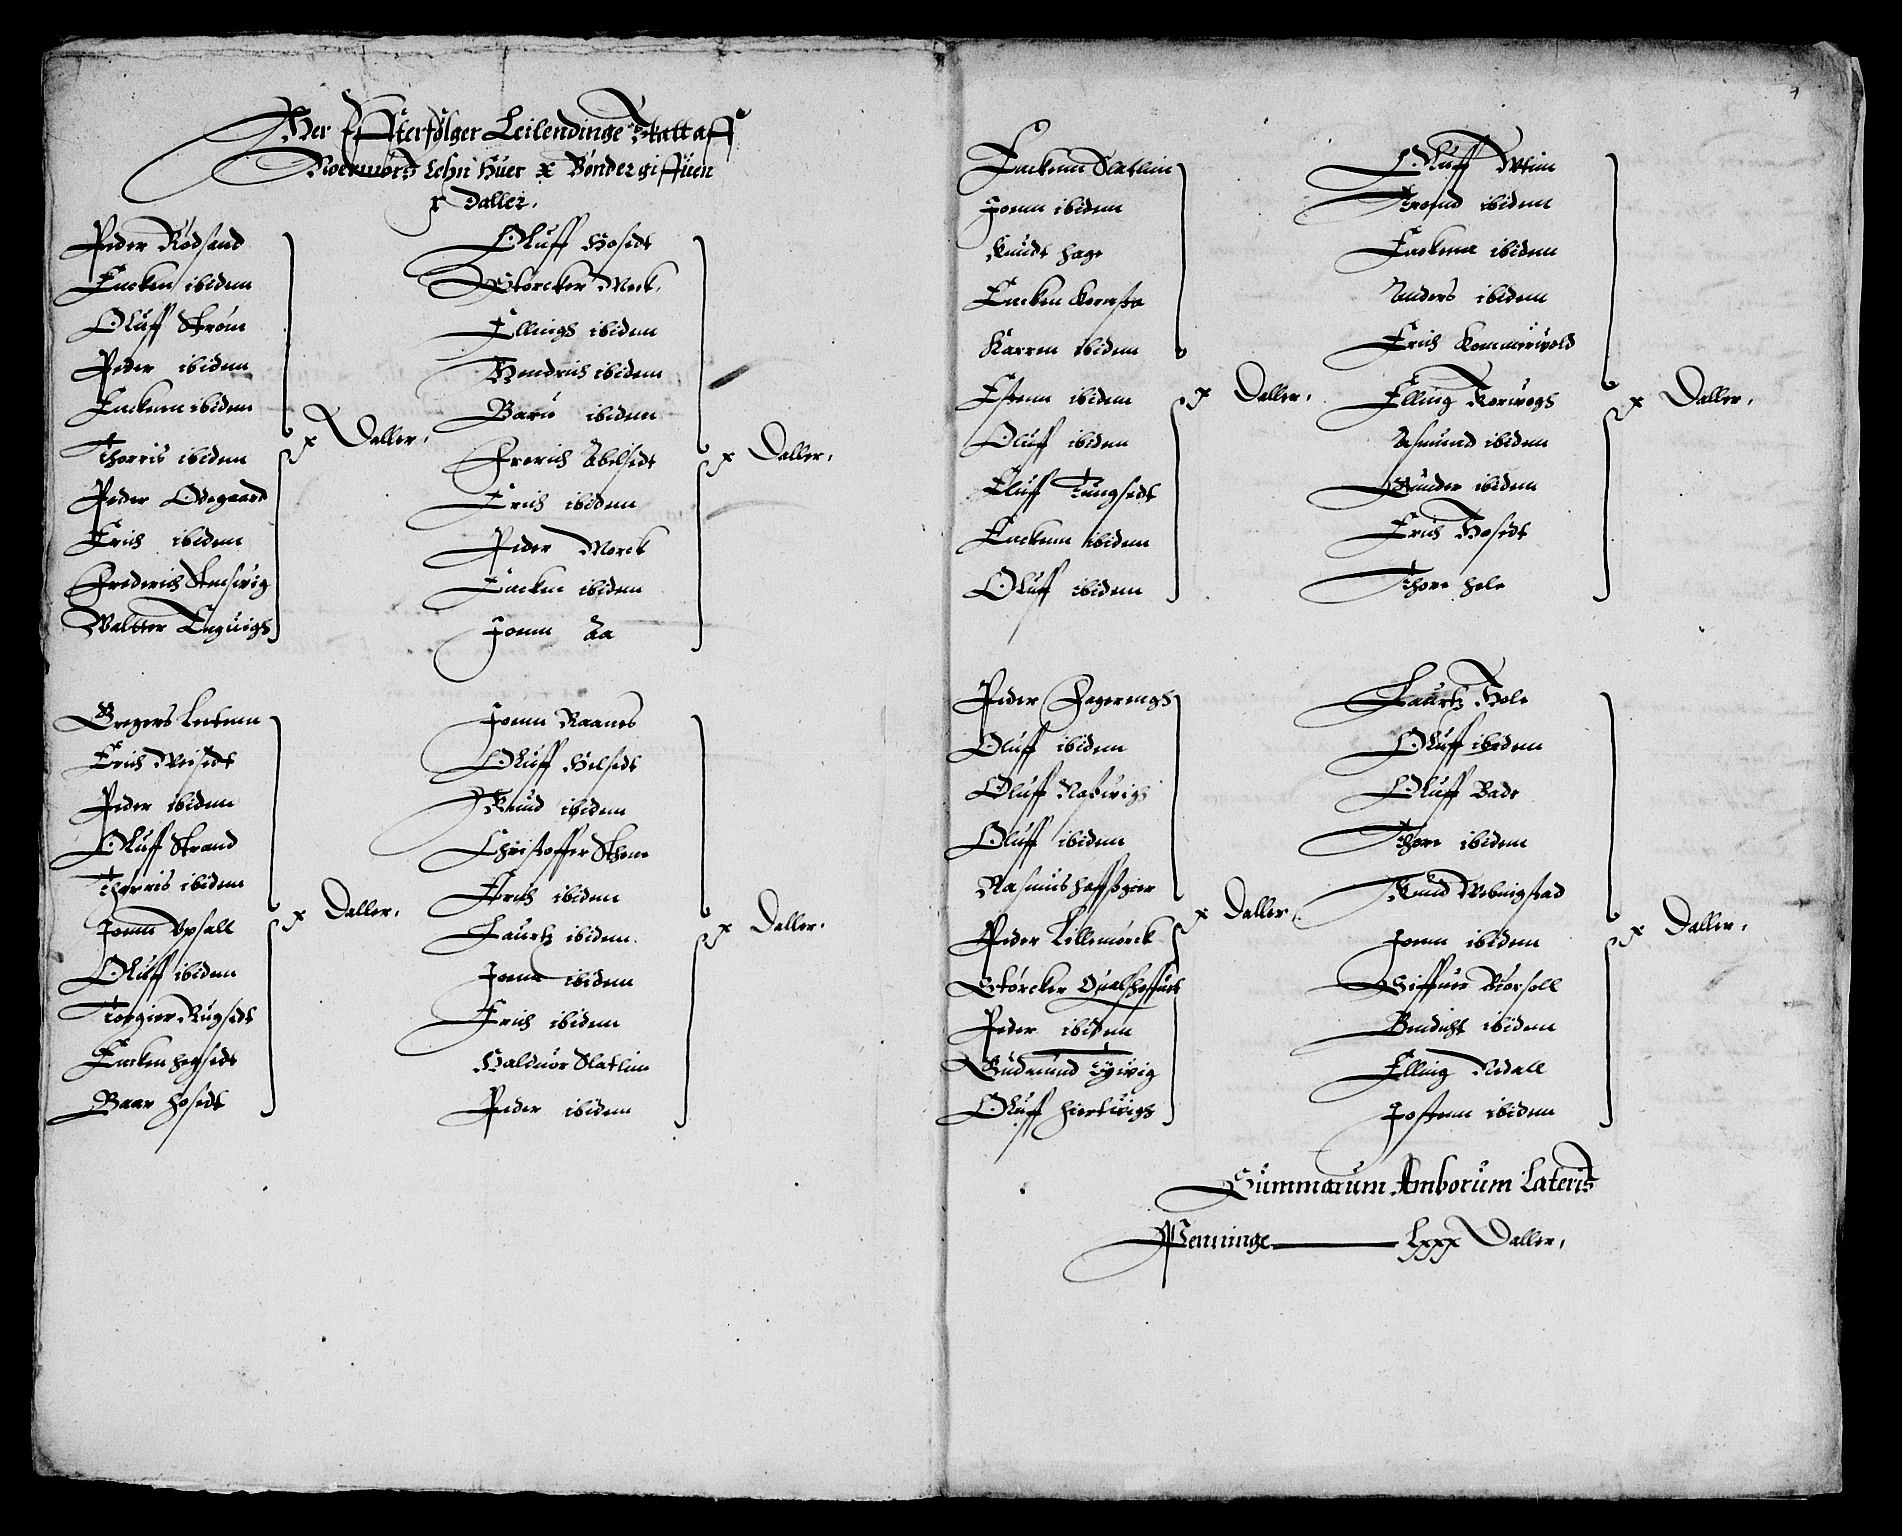 Her Effterfølger Leilendinge Skatt aff
Noermørs Lehn Huer x Bønder giffuen
x Daller.
Peder Rødsand
Encken ibidem
Oluff Strøm
Peder ibidem
Enckenn ibidem
Thorris ibidem
Peder Odegaard
Erich ibidem
Frederich Stensvig
Waltter Enguigh
x Daller.
Oluff Hosedt
Størcker Meck
Ellingh ibidem
Hendrich ibidem
Baru ibidem
Frerich Abelsedt
Erich ibidem
Peder Morck
Encken ibidem
Jonn Aa
x Daller.
Gregers Leetenn
Erich Meisedt
Peder ibidem
Oluff Strand
Thorris ibidem
Jonn Vpsall
Oluff ibidem
Torgier Rugsedt
Encken Hegsedt
Baar Hosedt
x Daller.
Jonn Raanes
Oluff Helsedt
Knud ibidem
Christoffer Skeme
Erich ibidem
Laurtz ibidem
Jonn ibidem
Erich ibidem
Halduor Slatlim
Peder ibidem
x Daller.
Enckenn Slatlim
Jonn ibidem
Knudt Hage
Encken
Karren ibidem
Estenn ibidem
Oluff ibidem
Eluff Tungsedt
Enckenn ibidem
Oluff ibidem
x Daller.
Oluff
Trond ibidem
Enckenn ibidem
Anders ibidem
Erich Kommeruold
Elling Koruogh
Asmund ibidem
Gunder ibidem
Erich Hosedt
Thore Hole
x Daller.
Peder Fageruigh
Oluff ibidem
Oluff Nastuigh
Oluff ibidem
Rasmus
Peder Lillemørck
Størcker Qualshoffuit
Peder ibidem
Gudmund
Oluff Hiertuigh
x Daller.
Laurtz Hole
Oluff ibidem
Oluff Bade
Thore ibidem
Knud
Jonn ibidem
Siffuer Rørsoll
Bendicht ibidem
Elling Nedall
Jostenn ibidem
x Daller.
Summarum Amborum Lateris
Penninge Lxxx Daller.